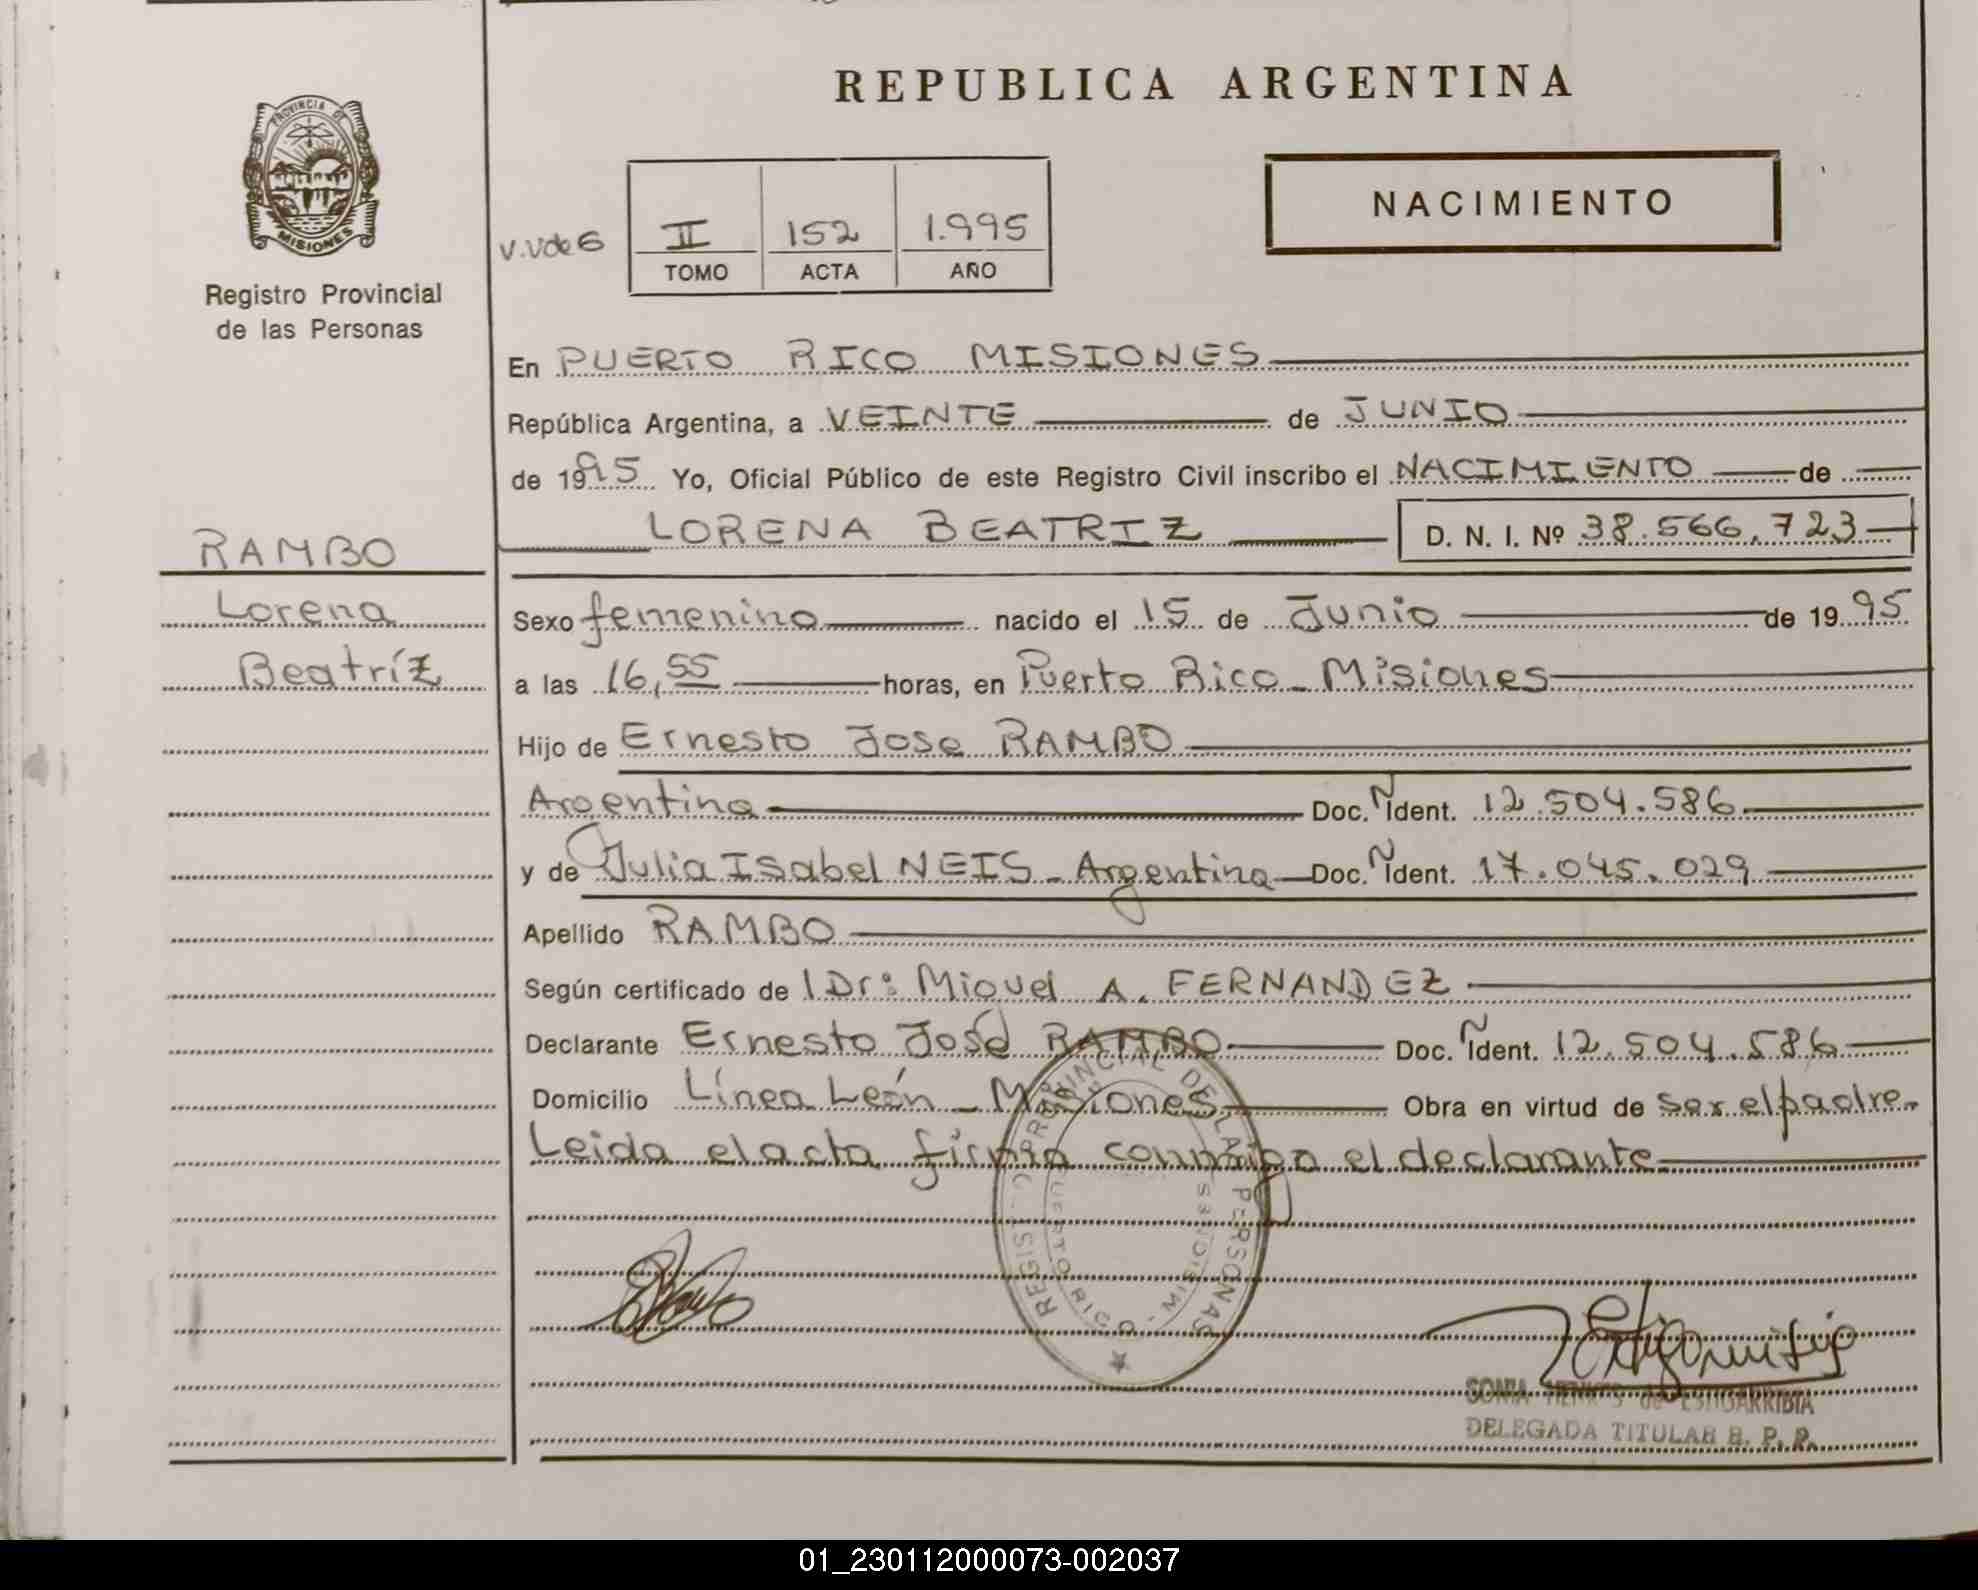 REPUBLICA ARGENTINA
PROVINCIA DE
MISIONES
Registro Provincial
de las Personas
NACIMIENTO
II 152 1.995
TOMO ACTA AÑO
En PUERTO RICO MISIONES
República Argentina, a VEINTE de JUNIO
de 1995 Yo, Oficial Público de este Registro Civil inscribo el NACIMIENTO de
LORENA BEATRIZ D. N. I. Nº 38.566.723
RAMBO
Lorena
Beatríz
Sexo femenino nacido el 15 de Junio de 1995
a las 16,55 horas, en Puerto Rico - Misiones
Hijo de Ernesto Jose RAMBO
Argentina Doc. Ñ Ident. 12.504.586
y de Julia Isabel NEIS - Argentina Doc. Ñ Ident. 17.045.029
Apellido RAMBO
Según certificado de l Dr: Miguel A. FERNANDEZ
Declarante Ernesto José RAMBO Doc. Ñ Ident. 12.504.586
Domicilio Línea León - Misiones Obra en virtud de ser el padre.
Leida el acta firma conmigo el declarante
REGISTRO PROVINCIAL DE LAS PERSONAS
PUERTO RICO - MISIONES
SONIA de ESTIGARRIBIA
DELEGADA TITULAR R. P. P.
01_230112000073-002037